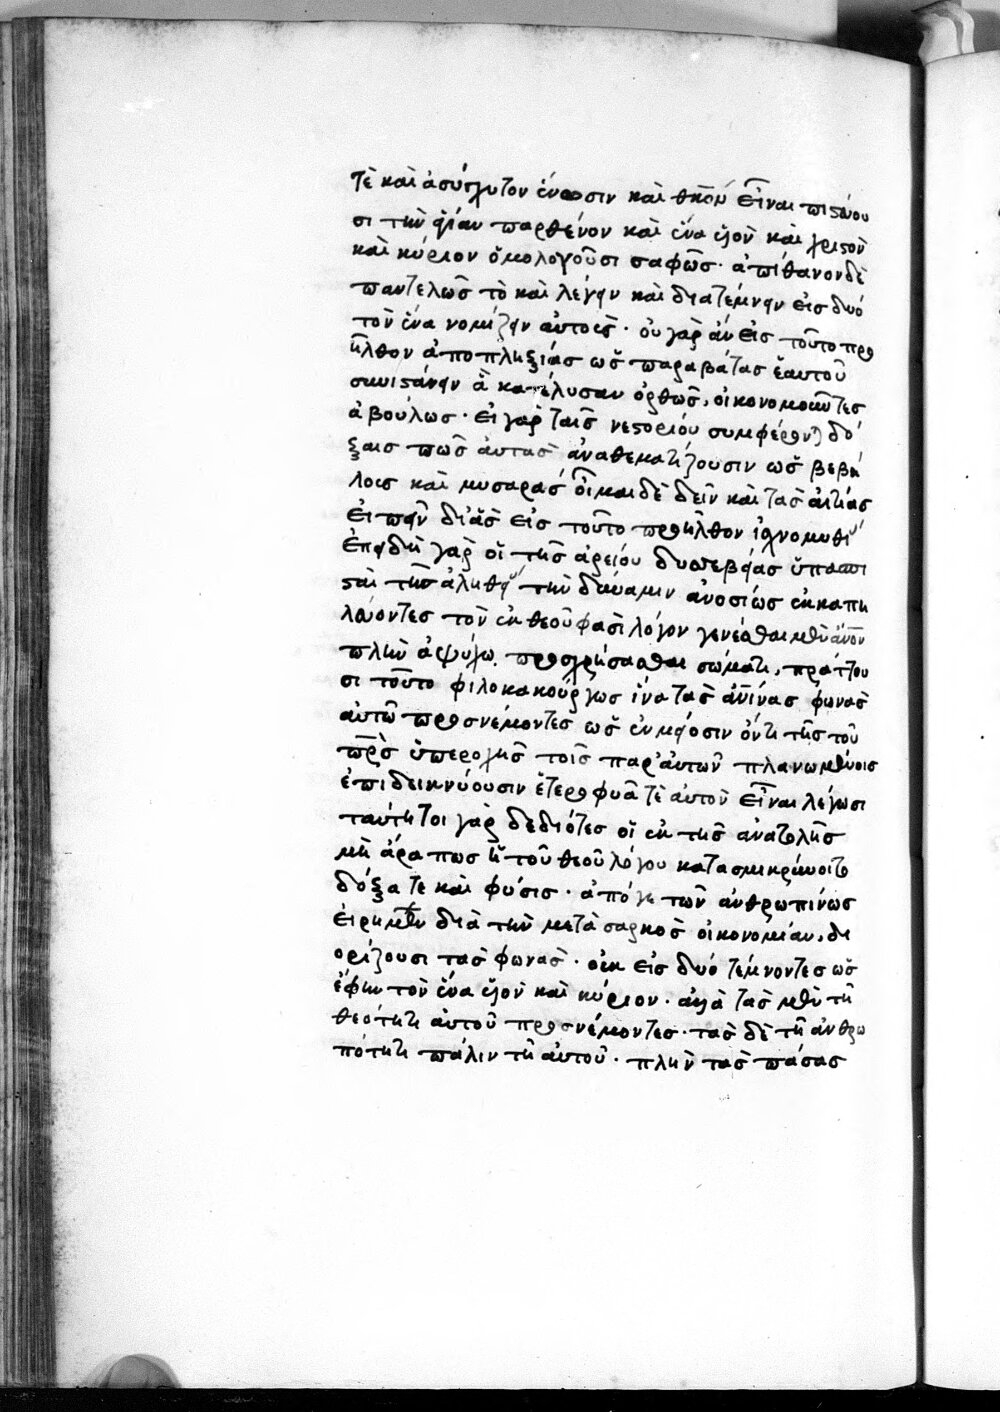 τὲ καὶ ἀσύγχυτον ἕνωσιν καὶ θκον εἶναι πιστεύου
σι τὴν ἁγίαν παρθένον καὶ ἕνα υἱὸν καὶ χριστὸν
καὶ κύριον ὁμολογοῦσι σαφῶς· ἀπίθανον δὲ
παντελῶς τὸ καὶ λέγειν καὶ διατέμνειν εἰς δυό
τὸν ἕνα νομίζειν αὐτοὺς· οὐ γὰρ ἂν εἰς τοῦτο προ
ῆλθον ἀποπληξίας ὡς παραβάτας ἑαυτοῦ
συνιστάνειν ἃ κατέλυσαν ὀρθῶς, οἰκονομοῦντες
ἀβούλως· εἰ γὰρ ταῖς νεστορίου συμφέρονται δό
ξαις πῶς αὐτὰς ἀναθεματίζουσιν ὡς βεβή
λους καὶ μυσαράς οἶμαι δὲ δεῖν καὶ τὰς αἰτίας
εἰπεῖν δι' ἃς εἰς τοῦτο προῆλθον ἰχνομυθί
ἐπειδὴ γὰρ οἱ τῆς ἀρείου δυσσεβείας ὑπασπι
σταὶ τῆς ἀληθεί τὴν δύναμιν ἀνοσίως ἐκκαπη
λεύοντες τὸν ἐκ θεοῦ φασὶ λόγον γενέσθαι μὲν ἄνον
πλὴν ἀψύχω προσχρήσασθαι σώματι, πράττου
σι τοῦτο φιλοκακούργως ἵνα τὰς ἀνίνας φωνὰς
αὐτῶ προσνέμοντες ὡς ἐν μείοσιν ὄντι τῆς τοῦ
πρς ὑπεροχῆς τοῖς παρ' αὐτῶν πλανωμένοις
ἐπιδεικνύουσιν ἑτεροφυᾶ τὲ αὐτὸν εἶναι λέγωσι
ταύτητοι γὰρ δεδιότες οἱ ἐκ τῆς ἀνατολῆς
μὴ ἄρα πως ἡ τοῦ θεοῦ λόγου κατασμικρύνοιτο
δόξα τε καὶ φύσις· ἀπό γε τῶν ἀνθρωπίνως
εἰρημένων διὰ τὴν μετὰ σαρκὸς οἰκονομίαν, δι
ορίζουσι τὰς φωνὰς· οὐκ εἰς δυό τέμνοντες ὡς
ἔφην τὸν ἕνα υἱὸν καὶ κύριον· ἀλλὰ τὰς μὲν τῆ
θεότητι αὐτοῦ προσνέμοντες· τὰς δὲ τῆ ἀνθρω
πότητι πάλιν τῆ αὐτοῦ· πλὴν τὰς πάσας